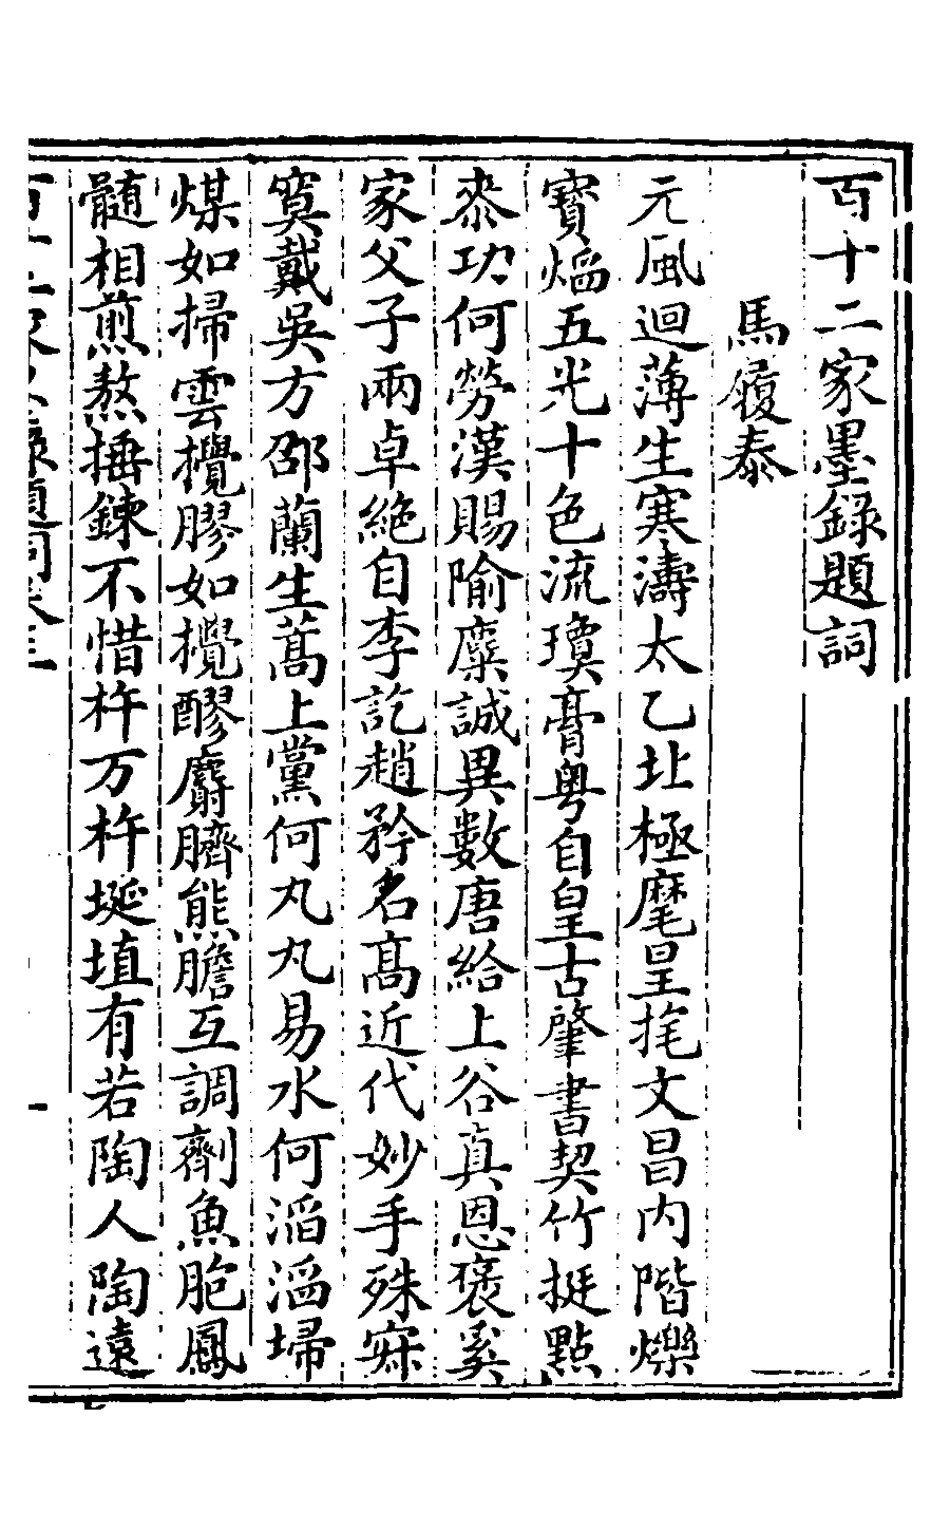 百十二家墨録題詞
馬履泰
元風迴薄生寒濤太乙北極麾皇旄文昌内階爍
寶熖五光十色流瓊膏粤自皇古肇書契竹挺點
桼功何勞漢賜隃糜誠異數唐給上谷真恩褒奚
家父子兩卓絶自李訖趙矜名髙近代妙手殊寂
寞戴吳方邵蘭生蒿上黨何丸丸易水何滔滔埽
煤如掃雲攪膠如攪醪麝臍熊膽互調劑魚胞鳳
髓相煎熬捶鍊不惜杵万杵埏埴有若陶人陶遠